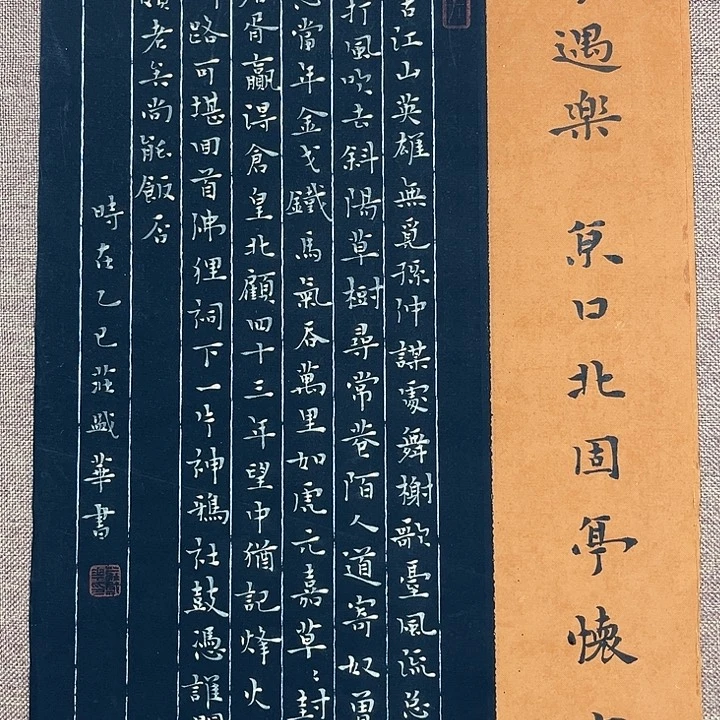 遇樂 京口北固亭懷
古江山英雄無覓孫仲謀處舞榭歌臺風流总
打風吹去斜陽草樹尋常巷陌人道寄奴曾
想當年金戈鐵馬氣吞萬里如虎元嘉草〻封
居胥贏得倉皇北顧四十三年望中猶記烽火
路可堪回首佛狸祠下一片神鴉社鼓憑誰問
頗老矣尚能飯否
時在乙巳莊盛華書